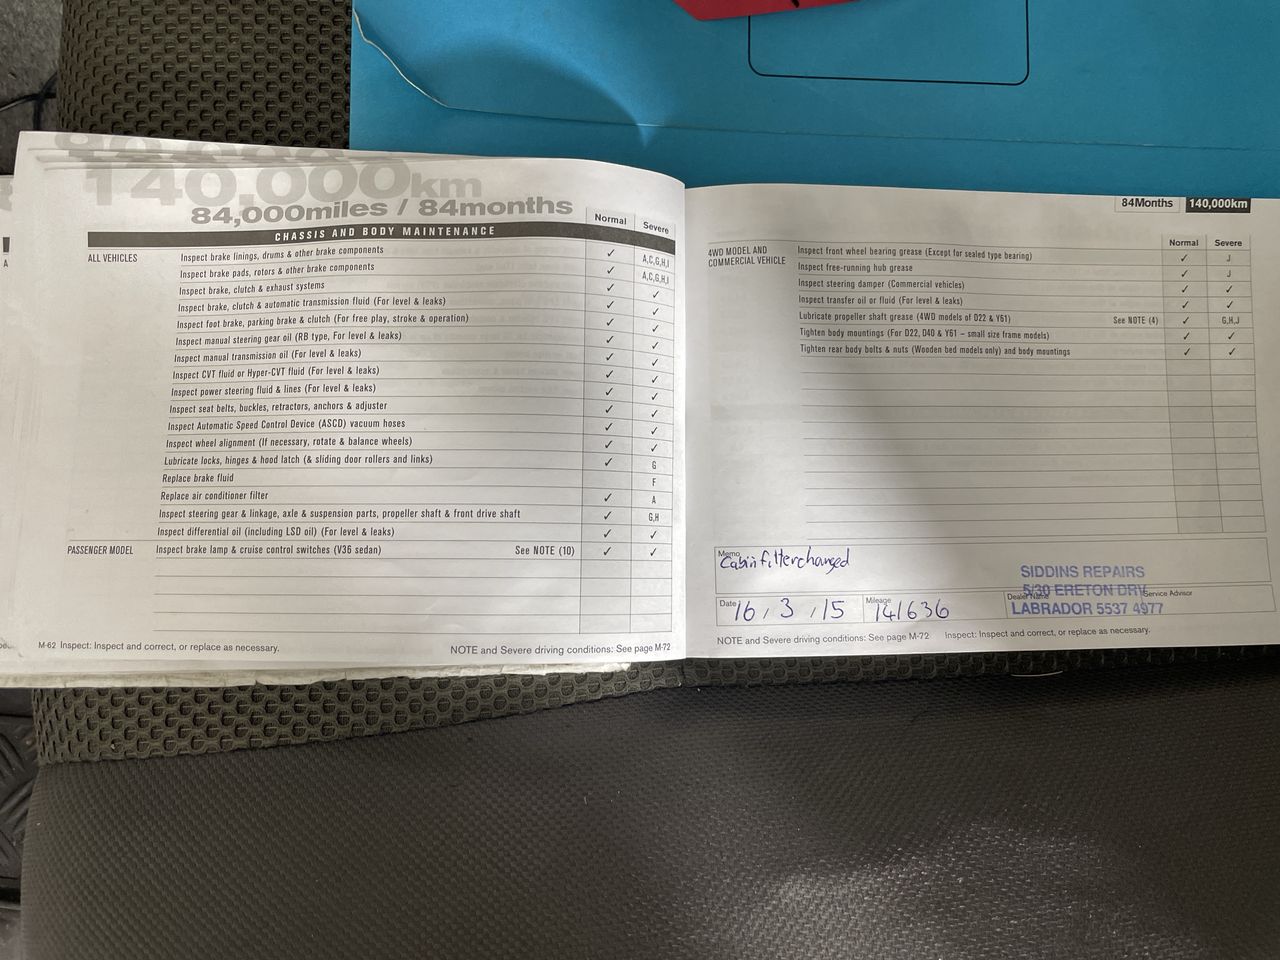 140,000km
84,000miles / 84months
Normal Severe
CHASSIS AND BODY MAINTENANCE
ALL VEHICLES Inspect brake linings, drums & other brake components ✓ A,C,G,H,I
Inspect brake pads, rotors & other brake components ✓ A,C,G,H,I
Inspect brake, clutch & exhaust systems ✓ ✓
Inspect brake, clutch & automatic transmission fluid (For level & leaks) ✓ ✓
Inspect foot brake, parking brake & clutch (For free play, stroke & operation) ✓ ✓
Inspect manual steering gear oil (RB type, For level & leaks) ✓ ✓
Inspect manual transmission oil (For level & leaks) ✓ ✓
Inspect CVT fluid or Hyper-CVT fluid (For level & leaks) ✓ ✓
Inspect power steering fluid & lines (For level & leaks) ✓ ✓
Inspect seat belts, buckles, retractors, anchors & adjuster ✓ ✓
Inspect Automatic Speed Control Device (ASCD) vacuum hoses ✓ ✓
Inspect wheel alignment (If necessary, rotate & balance wheels) ✓ ✓
Lubricate locks, hinges & hood latch (& sliding door rollers and links) ✓ G
Replace brake fluid F
Replace air conditioner filter ✓ A
Inspect steering gear & linkage, axle & suspension parts, propeller shaft & front drive shaft ✓ G,H
Inspect differential oil (including LSD oil) (For level & leaks) ✓ ✓
PASSENGER MODEL Inspect brake lamp & cruise control switches (V36 sedan) See NOTE (10) ✓ ✓
M-62 Inspect: Inspect and correct, or replace as necessary. NOTE and Severe driving conditions: See page M-72
84Months 140,000km
Normal Severe
4WD MODEL AND COMMERCIAL VEHICLE Inspect front wheel bearing grease (Except for sealed type bearing) ✓ J
Inspect free-running hub grease ✓ J
Inspect steering damper (Commercial vehicles) ✓ ✓
Inspect transfer oil or fluid (For level & leaks) ✓ ✓
Lubricate propeller shaft grease (4WD models of D22 & Y61) See NOTE (4) ✓ G,H,J
Tighten body mountings (For D22, D40 & Y61 – small size frame models) ✓ ✓
Tighten rear body bolts & nuts (Wooden bed models only) and body mountings ✓ ✓
Memo
Cabin filter changed
SIDDINS REPAIRS
5/30 ERETON DRV
LABRADOR 5537 4977
Date 16 / 3 / 15 Mileage 141636 Dealer Name Service Advisor
NOTE and Severe driving conditions: See page M-72 Inspect: Inspect and correct, or replace as necessary.